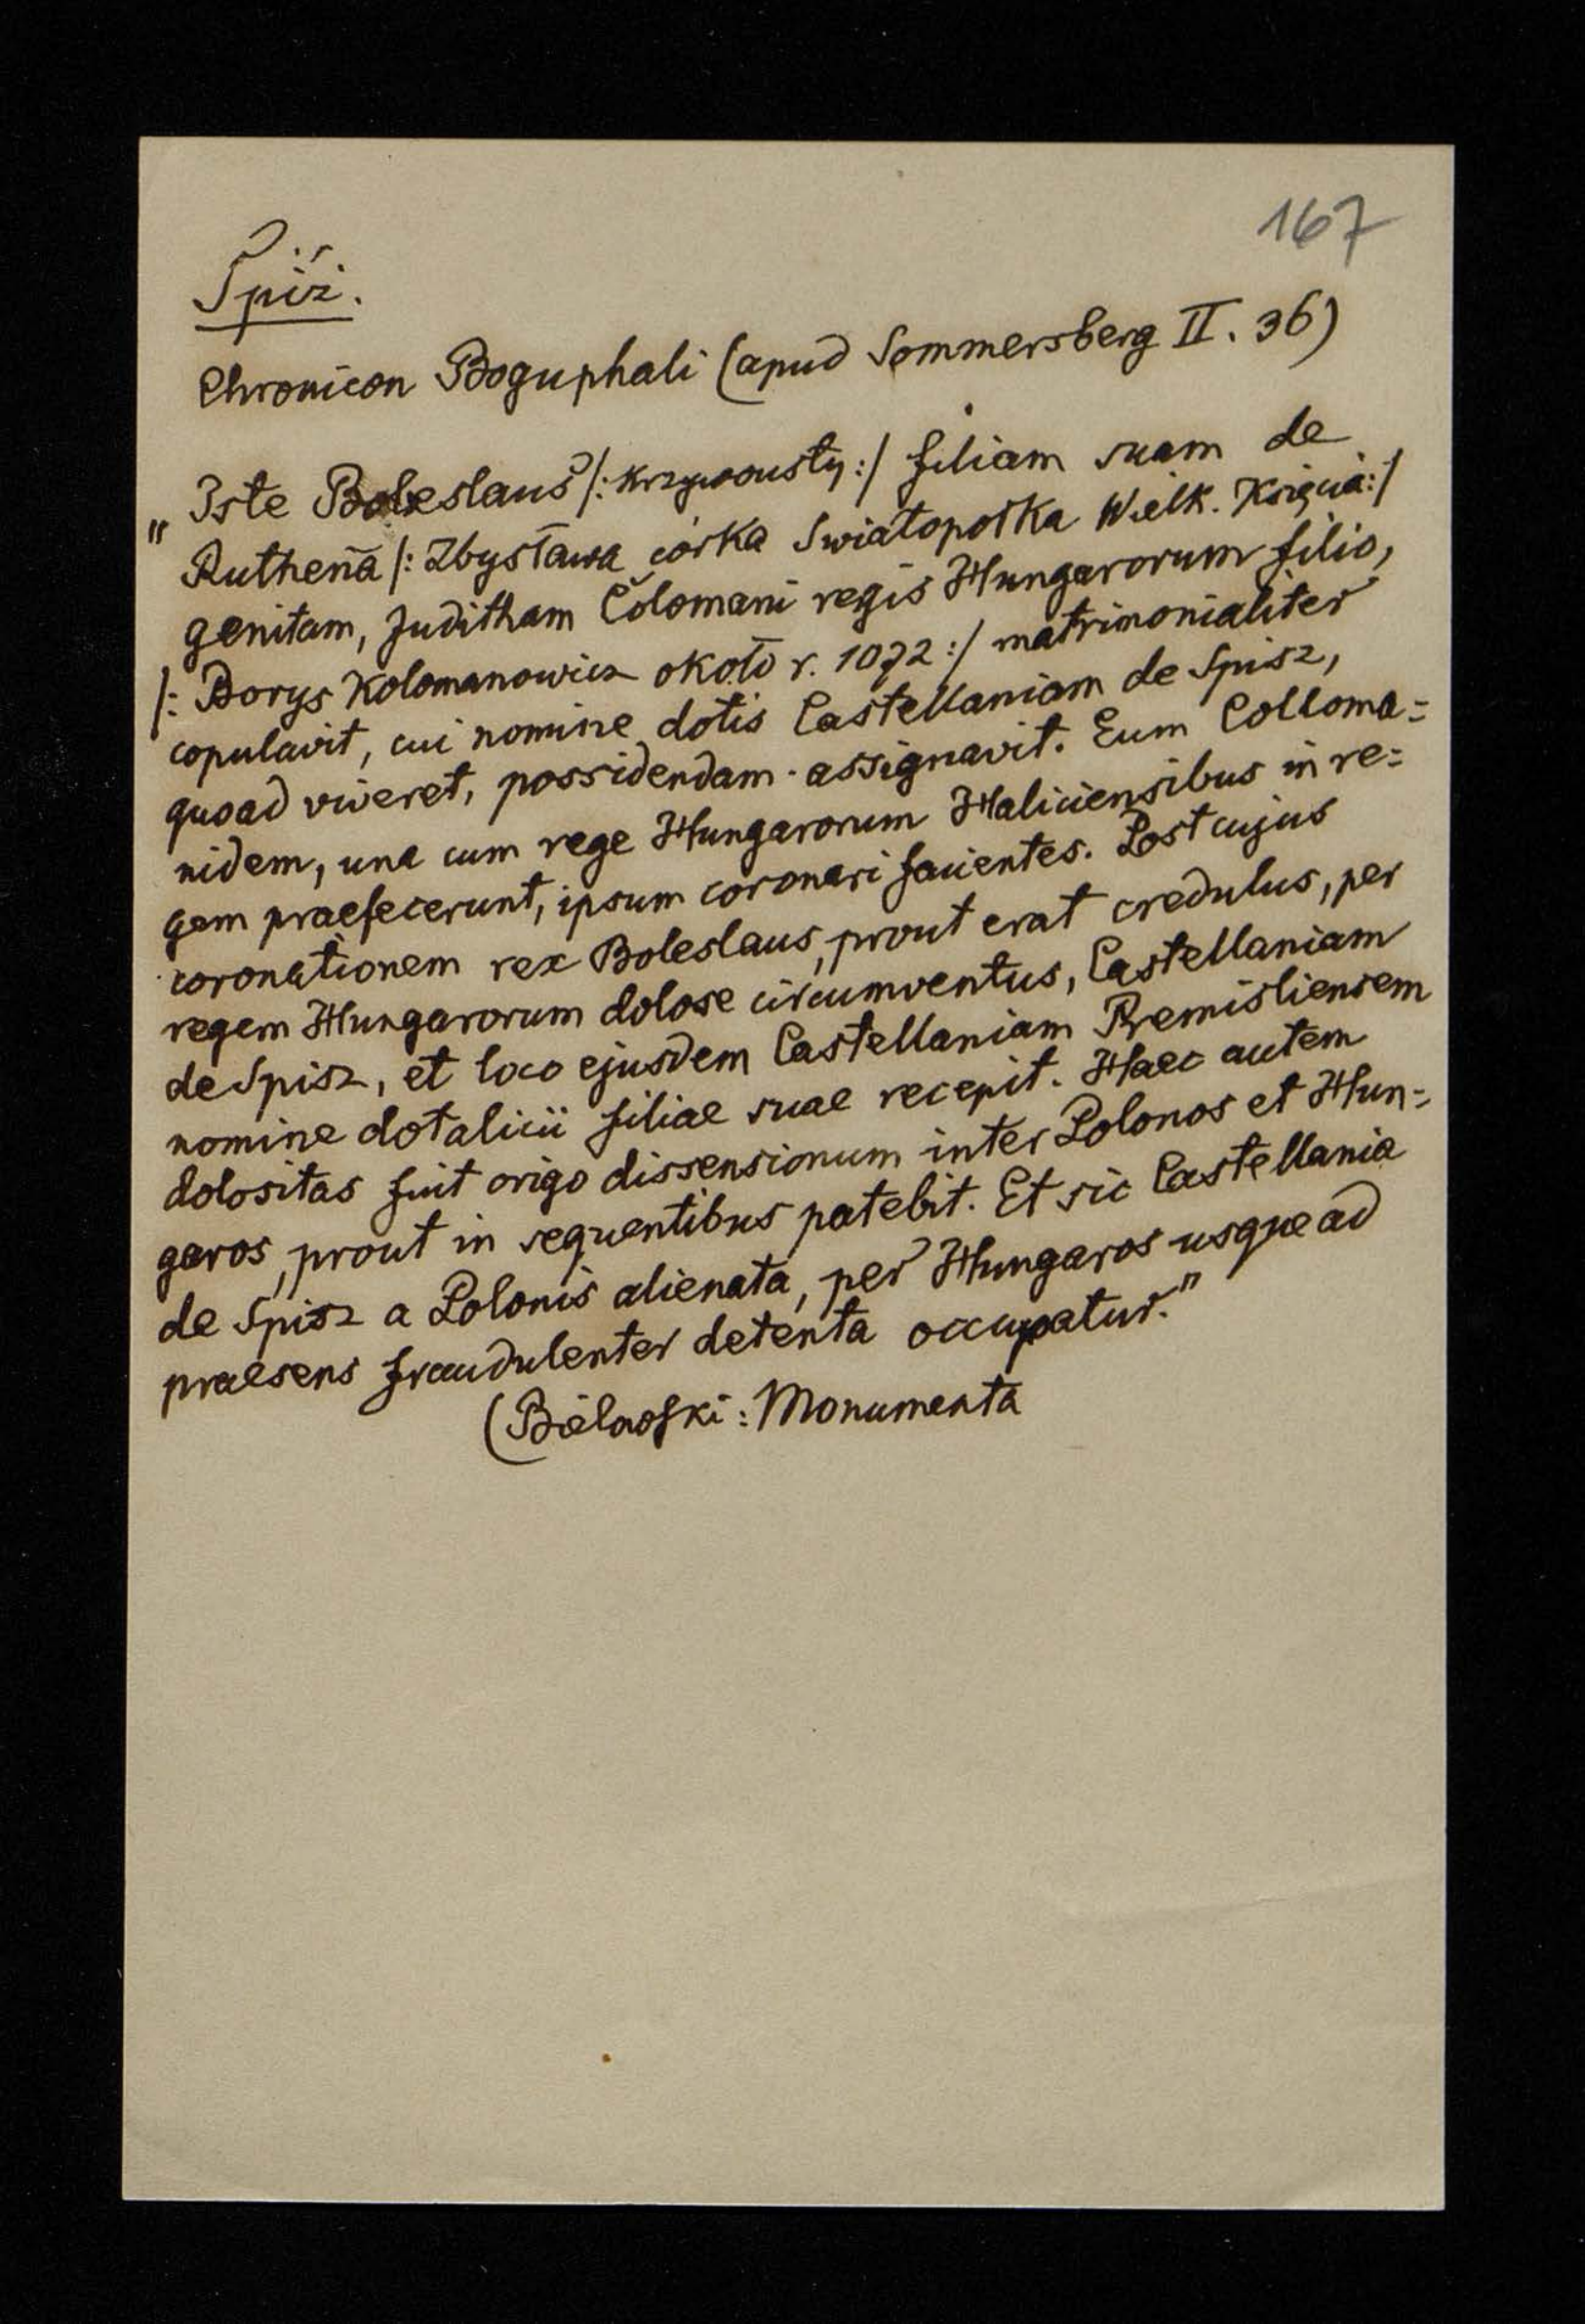 167
Spiż.
Chronicon Boguphali (apud Sommersberg II. 36)
„ Iste Boleslaus /: Krzywousty :/ filiam suam de
Ruthena /: Zbysława córka Swiatopołka Wielk. Księcia :/
genitam, Juditham Colomani regis Hungarorum filio,
/: Borys Kolomanowicz około r. 1072 :/ matrimonialiter
copulavit, cui nomine dotis Castellaniam de Spisz,
quoad viveret, possidendam assignavit. Eum Colloma=
nidem, una cum rege Hungarorum Haliciensibus in re=
gem praefecerunt, ipsum coronari facientes. Post cujus
coronationem rex Boleslaus, prout erat credulus, per
regem Hungarorum dolose circumventus, Castellaniam
de Spisz, et loco ejusdem Castellaniam Premisliensem
nomine dotalicii filiae suae recepit. Haec autem
dolositas fuit origo dissensionum inter Polonos et Hun=
garos, prout in sequentibus patebit. Et sic Castellania
de Spisz a Polonis alienata, per Hungaros usque ad
praesens fraudulenter detenta occupatur."
(Bielowski: Monumenta